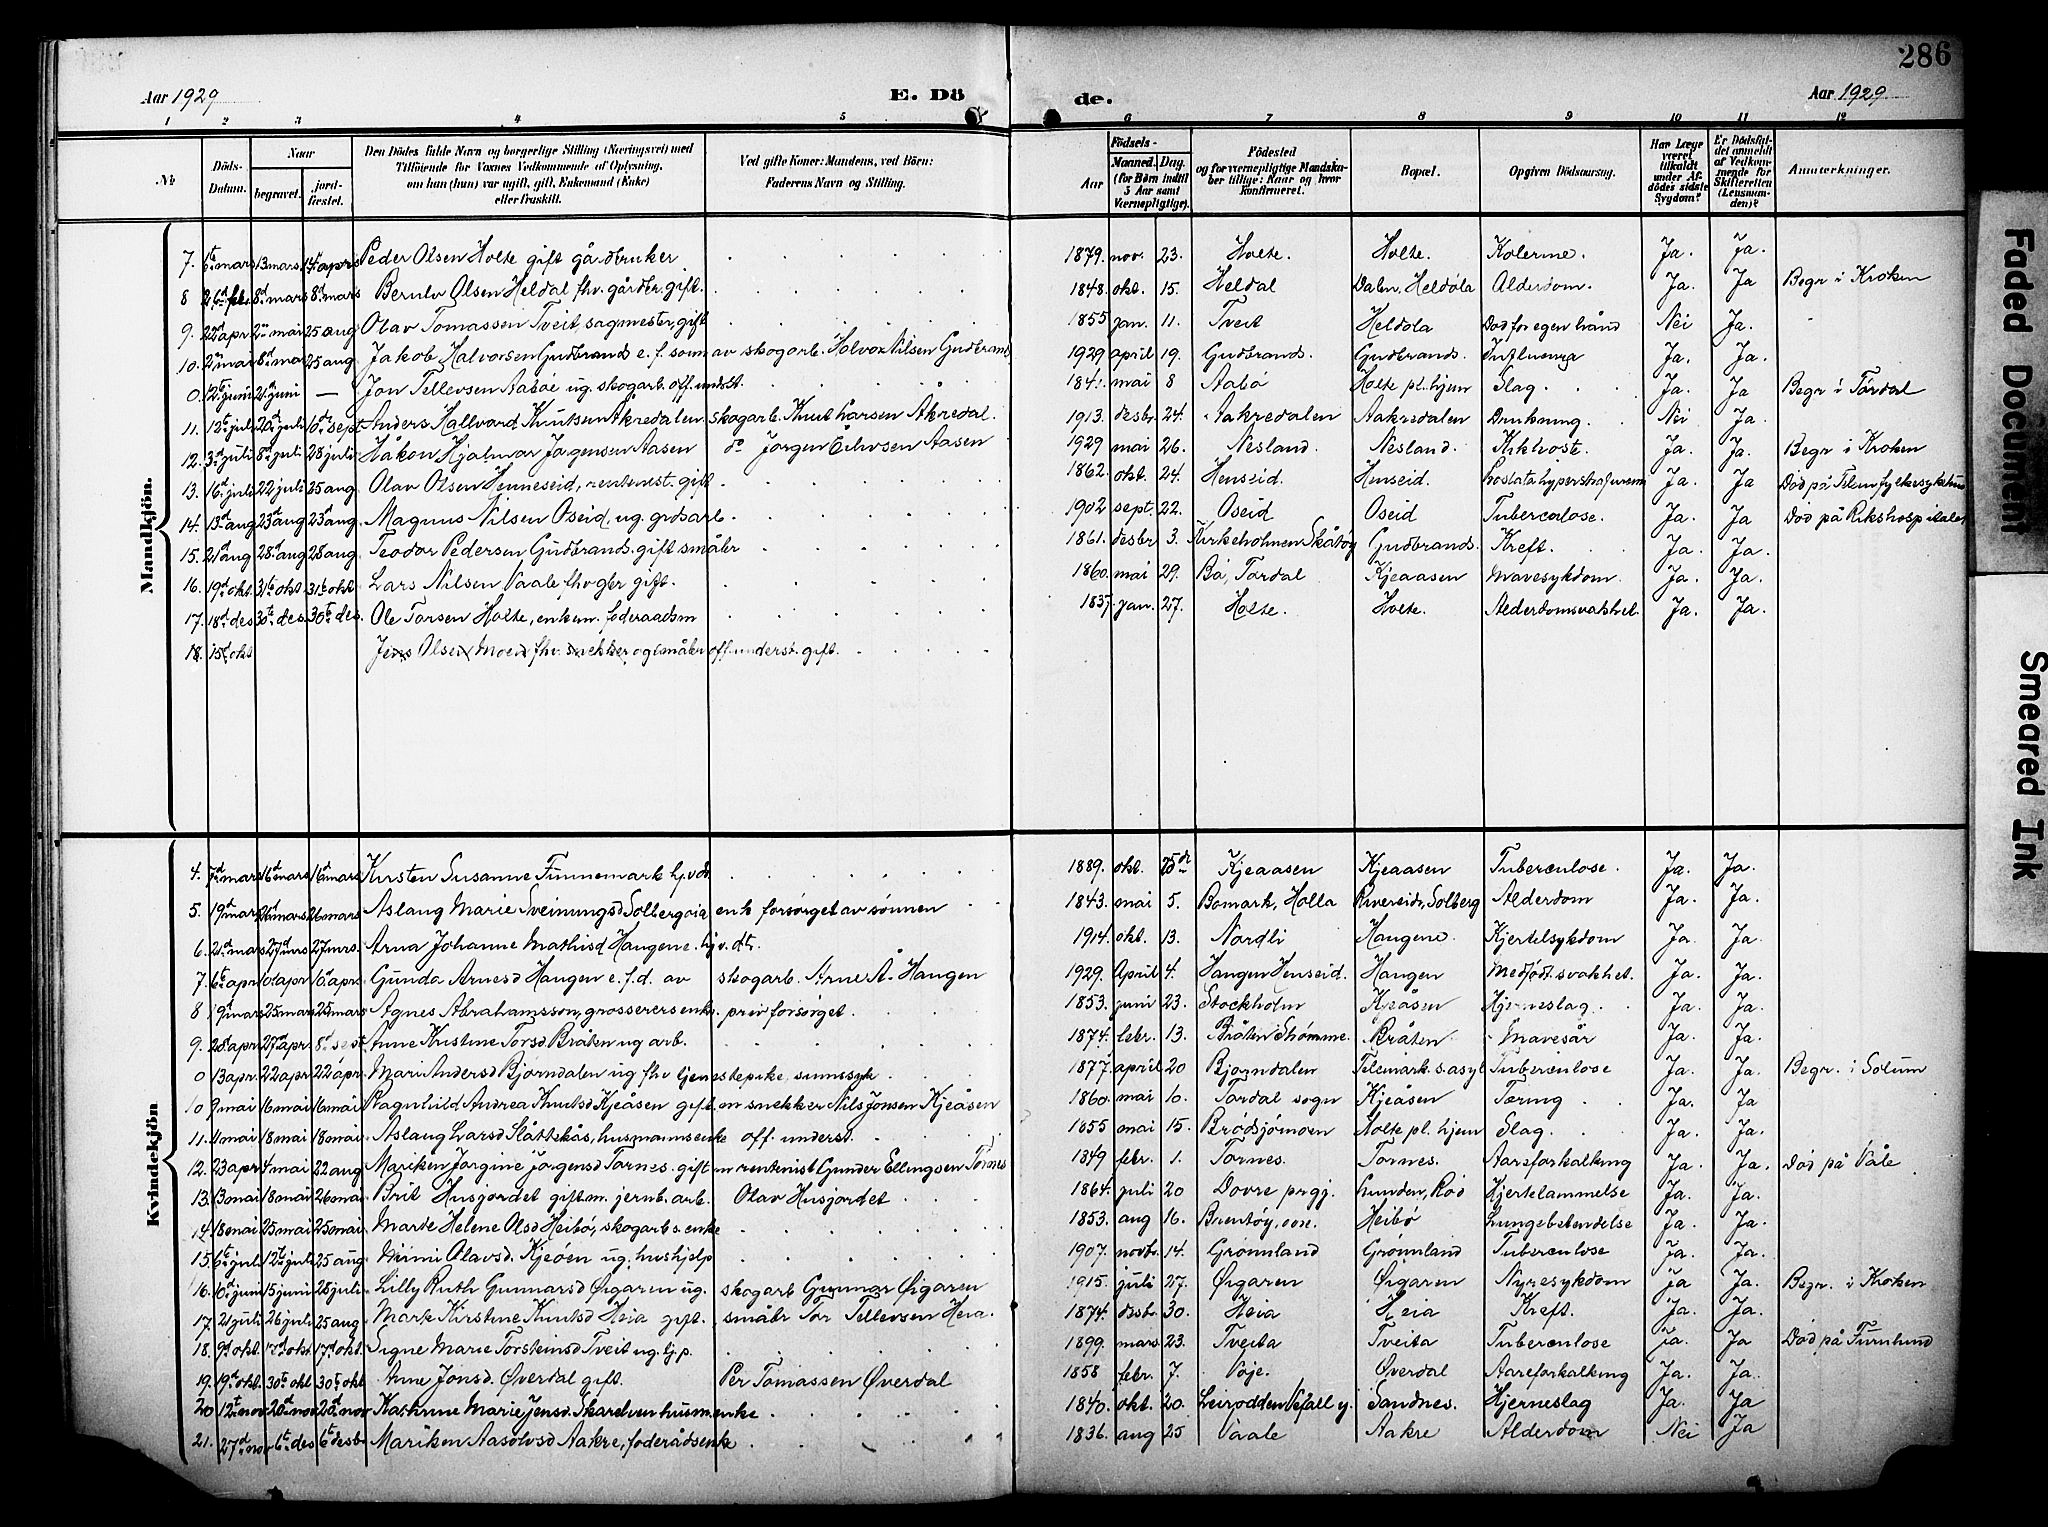 286
Aar 1929 E. Dö de. Aar 1929
1 2 3 4 5 6 7 8 9 10 11 12
№ Döds-Datum. Naar begravet. jordfæstet. Den Dödes fulde Navn og borgerlige Stilling (Næringsvei) med Tilföiende for Voxnes Vedkommende af Oplysning, om han (hun) var ugift, gift, Enkemand (Enke) eller fraskilt. Ved gifte Koner: Mandens, ved Börn: Faderens Navn og Stilling. Födsels- Aar Maaned. Dag. (for Börn indtil 5 Aar samt Værnepligtige). Födested og for værnepligtige Mandskaber tillige: Naar og hvor Konfirmeret. Bopæl. Opgiven Dödsaarsag. Har Læge været tilkaldt under Afdödes sidste Sygdom? Er Dödsfaldet anmeldt af Vedkommende for Skifteretten (Lensmanden)? Anmærkninger.
Mandkjön.
7. 6te mars 13 mars 14 apr Peder Olsen Holte gift gårdbruker 1879. nov. 23. Holte. Holte. Kolerine. Ja. Ja.
8 26d feb 8d mars 8d mars Bernlv Olsen Heldal fhv. gårdbr. gift. 1848. okt. 15. Heldal Dalen, Heldøla Alderdom. Ja. Ja Begr i Kroken
9. 22d apr 2n mai 25 aug Olav Tomassen Tveit, sagmester, gift 1855 jan. 11. Tveit Heldøla Død for egen hånd Nei Ja.
10. 2n mai 6te mai 25 aug Jakob Halvorsen Gudbrands e.f. sønn av skogarb. Halvor Nilsen Gudbrands 1929 april 19. Gudbrands. Gudbrands. Influensa Ja. Ja.
0. 12te juni 21 juni — Jon Tellevsen Aabøe ug. skogarb. off. underst. mai 8 Aabø Holte pl.hjem Slag. Ja. Ja Begr i Tørdal
11. 12te juli 20d juli 10d sept Anders Hallvard Knutsen Åkredalen skogarb. Knut Larsen Åkredal. 1913. desbr 24. Aakredalen Aakredalen Drukning. Nei Ja.
12. 3d juli 8d juli 28 juli Håkon Hjalmar Jørgensen Aasen do Jørgen Eilevsen Aasen 1929 mai 26. Nesland. Nesland. Kikhoste. Ja. Ja. Begr i Kroken
13. 16d juli 22 juli 25 aug Olav Olsen Henneseid, rentenist. gift 1862. okt. 24. Henseid. Henseid. Ja. Ja Død på Telem fylkessykehus
14. 13d aug 23d aug 23d aug Magnus Nilsen Oseid, ug. grdsarb. 1902 sept. 22. Oseid Oseid Tuberculose. Ja. Ja Død på Rikshospitalet
15. 21d aug 28d aug 28 aug Teodor Pedersen Gudbrands. gift småbr 1861. desbr 3. Kirkeholmen Skåtøy Gudbrands. Kreft. Ja. Ja.
16. 19d okt 31te okt 31te okt Lars Nilsen Vaale fhv gbr gift. 1860. mai 29. Bø, Tørdal Kjeaasen Mavesykdom. Ja. Ja.
17. 18d des 30te des 30te des. Ole Torsen Holte, enkem. føderaadsm 1837. jan. 27. Holte. Holte. Alderdomsvakhet. Ja. Ja.
18. 15d okt Jens Olsen Moen fhv. snekker og småbr off. underst. gift.
Kvindekjön
4. 7d mars 16d mars 16d mars Kirsten Susanne Finnemark hj.v.dt. 1889. okt. 25de Kjeaasen Kjeaasen Tuberculose. Ja. Ja.
5. 19d mars 26d mars 26 mars Aslaug Marie Sveinungsd Solbergvia enk forsørget av sønnen 1843. mai 5. Bomark, Holla Solberg Alderdom Ja. Ja.
6. 21d mars 27d mrs 27 mrs. Arna Johanne Mathisd Haugene. hj.v. dtr. 1914. okt. 13. Nordli Haugene. Kjertelsykdom Ja. Ja.
7. 6te apr 10d apr 10d apr. Gunda Arnesd Haugen e.f.d. av skogarb. Arne A. Haugen 1929. April 4. Haugen Henseid. Haugen Medfødt svakhet. Ja. Ja.
8 19 mars 25 mars 25 mars Agnes Abrahamsson, grosserersenke. priv forsørget 1853. juni 23. Stockholm Kjeåsen Hjerneslag. Ja. Ja.
9. 20d apr 27d apr. 8d sept. Anne Kristine Torsd Bråten ug arb. 1874. febr. 13. Bråten Bråten Mavesår Ja. Ja.
0 13 apr 22 apr 22 apr. Mari Andersd Bjørndalen ug fhv tjenestepike, sinnssyk 1877. april 20 Bjørndalen Telemark s.asyl Tuberculose Ja. Ja. Begr. i Solum
10 9 mai 16 mai 16 mai Ragnhild Andrea Knutsd Kjeåsen gift m snekker Nils Jonsen Kjeåsen 1860. mai 10. Tørdal sogn Kjeåsen Tæring Ja. Ja
11. 11 mai 18 mai 18 mai. Aslaug Larsd Slåttekås, husmannsenke off. underst. 1855 mai 15. Brødsjømoen Holte pl. hjem Slag. Ja. Ja.
12. 23 apr 4 mai 22 aug Mariken Jørgine Jørgensd Tornes. gift m rentenist Gunder Ellingsen Tornes 1849 febr. 1. Tornes. Tornes. Aareforkalkning Ja. Ja. Død på Våle
13. 13 mai 18 mai 26 mai Brit Husjordet gift m. jernb. arb. Olav Husjordet 1864. juli 20 Dovre prgj. Lunden, Rød Hjertelammelse Ja. Ja.
14. 18 mai 25 mai 25 mai Marie Helene Olsd Heibø, skogarb s. enke 1853. aug 16. Heibø Lungebetendelse Ja. Ja.
15. 6te juli 12te juli 25 aug Mimi Olavsd. Kjeøen ug. hushjelp 1907. novbr. 14. Grønnland Grønnland Tuberculose Ja. Ja.
16. 10d juni 15 juni 28 juli Lilly Ruth Gunnarsd Øigaren ug. skogarb Gunnar Øigaren 1915. juli 27. Øigaren Øigaren Nyresykdom Ja Ja. Begr. i Kroken
17. 21 juli 26 juli 25 aug Kirstine Knutsd Heia gift. småbr Tor Tellevsen Heia. 1874. desbr. 30. Heia Heia Kreft. Ja. Ja.
18. 9d okt 17d okt 17d okt. Signe Marie Torsteinsd Tveit ug. hj.p. 1899. mars 23. Tveita Tveita Tuberculose Ja. Ja Død på Furulund
19. 19d okt. 30te okt 30te okt Anne Jonsd. Øverdal gift. Per Tomassen Øverdal 1858 febr. 7. Voje. Øverdal Aareforkalkning Ja. Ja
20 12te nov 20d nov 20d nov Kathrine Marie Jensd. Skarelven husm.enke 1840. okt. 20. Leirodden Sandnes. Hjerneslag Ja. Ja.
21. 27d nov 6te des 6te desb Mariken Aasolvsd Aakre, føderådsenke 1836. aug 25 Vaale Aakre Alderdom Nei Ja
Faded Document
Smeared Ink